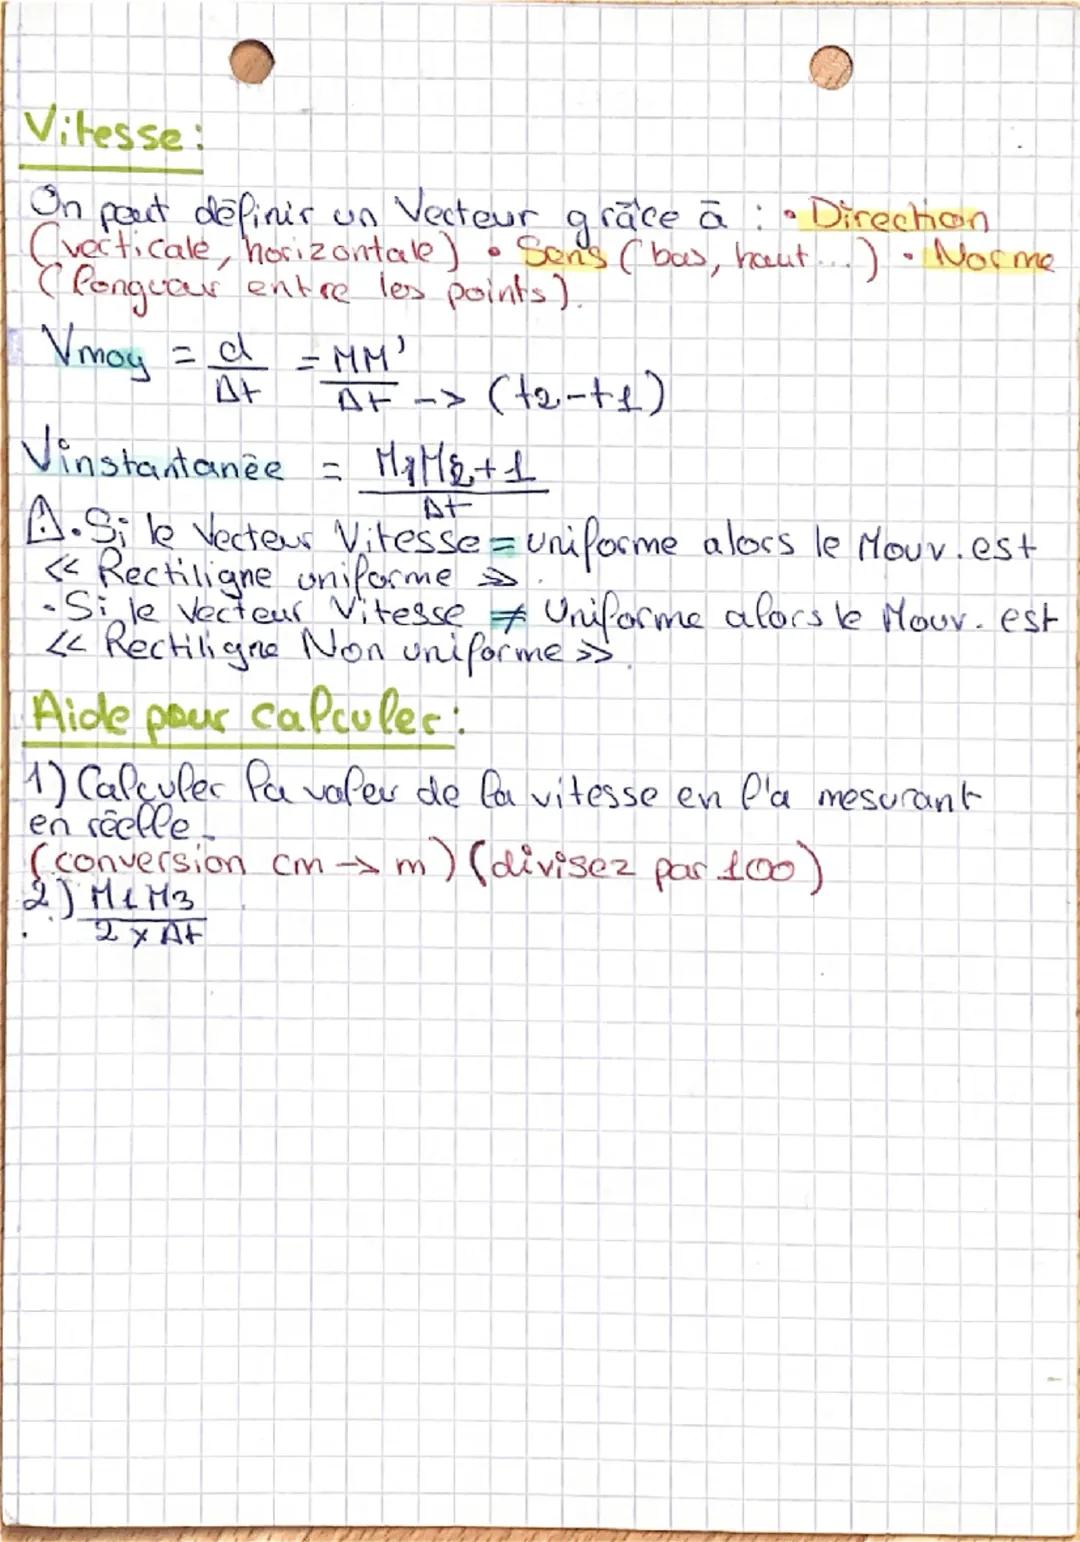 Vitesse :
On peut définir un Vecteur grâce à : • Direction
(verticale, horizontale) • Sens (bas, haut...) • Norme
(longueur entre les points).
Vmoy = d/Δt = MM'/Δt -> (t2-t1)
Vinstantanée = M1M2+1/Δt
⚠. Si le Vecteur Vitesse = uniforme alors le Mouv. est
<< Rectiligne uniforme >>.
• Si le Vecteur Vitesse ≠ Uniforme alors le Mouv. est
<< Rectiligne Non uniforme >>.
Aide pour calculer :
1) Calculer la valeur de la vitesse en l'a mesurant
en réelle.
(conversion cm -> m) (divisez par 100)
2) M1M3/2 x Δt